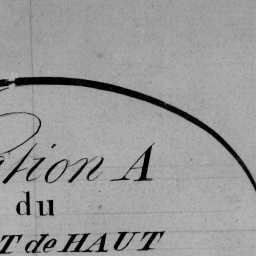 ction A
du
T de HAUT